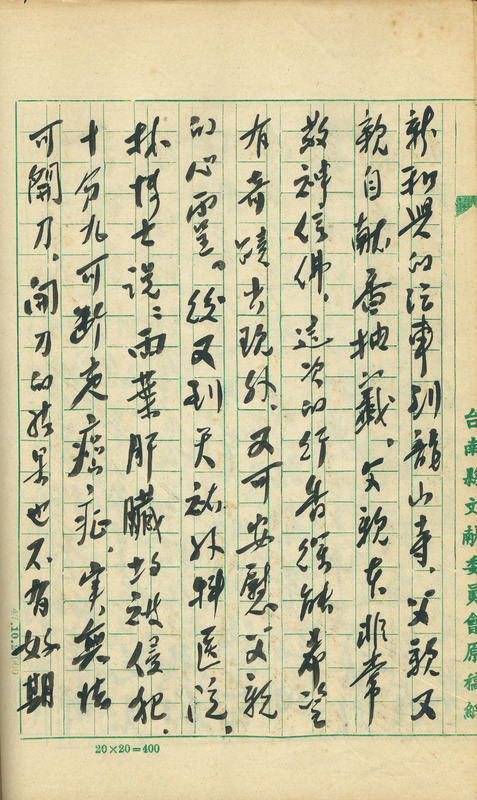 新和興的汽車到龍山寺、父親又
親自献香抽籤。父親本非常
敬神信佛、這次的行香經能希望
有奇蹟出現外、又可安慰父親
的心靈。後又到天祐外科医院。
林博士說：兩葉肝臟均被侵犯、
十分九可断定癌症、実無法
可開刀、開刀的結果也不有好期
台南縣文献委員會原稿紙
20×20=400